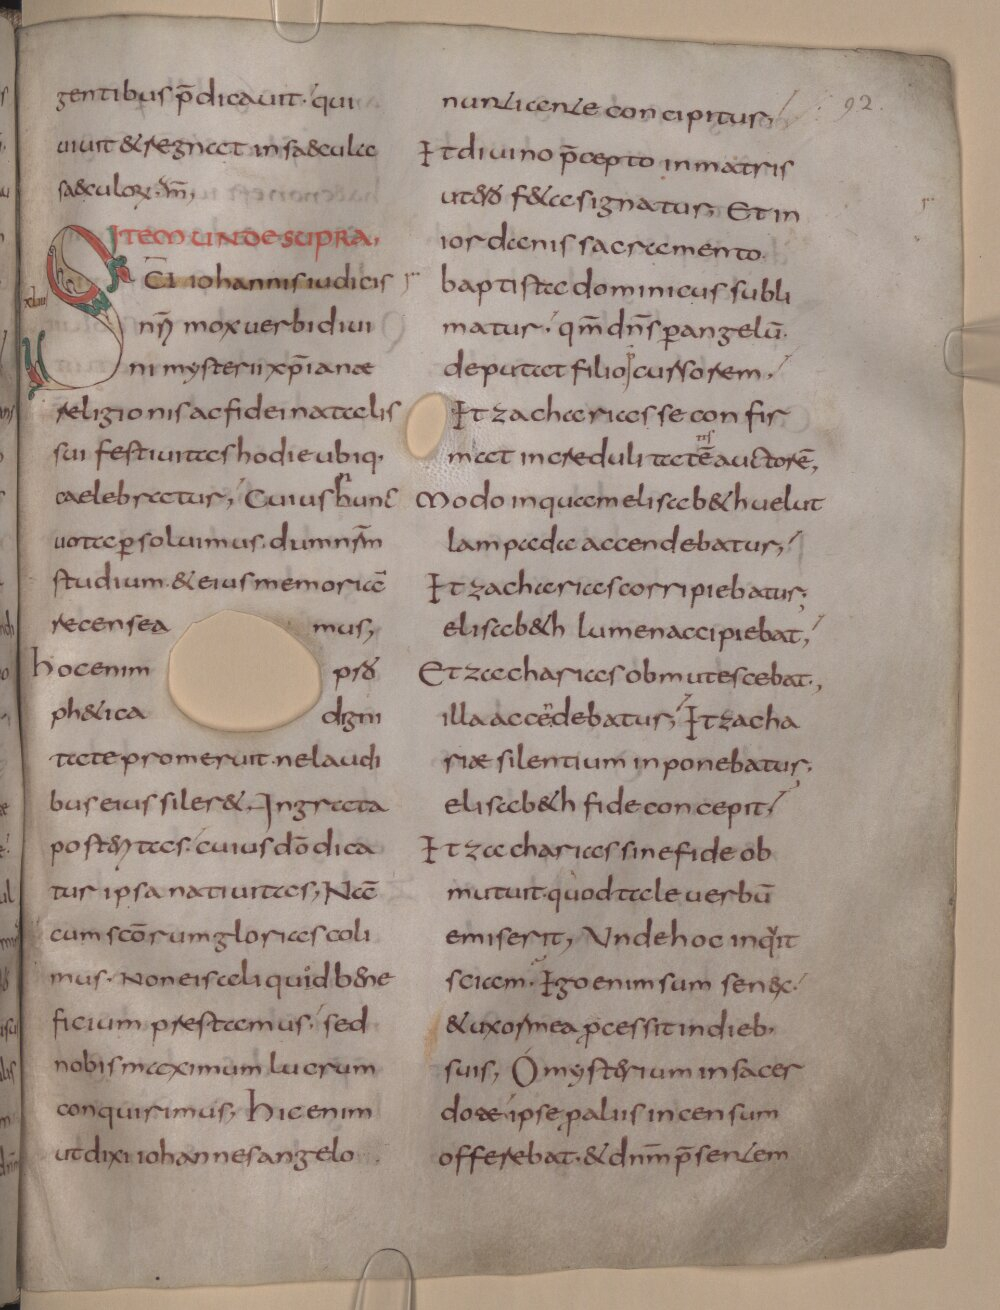 gentibus p̄dicauit· qui
uiuit & regnat in saecula
saeculoꝝ· am̄,
ITEM UNDE SUPRA,
SC̄I iohannis iudicis
nr̄i mox uerbi diui
ni mysterii xp̄ianae
religionis ac fidei natalis
sui festiuitas hodie ubiq,
caelebratur, Cuius hunc
uota ꝑsoluimus· dum nr̄m
studium & eius memoriā
recensea mus,
hoc enim
ph&ica digni
tate promeruit· ne laudi
bus eius siler&· Ingrata
eius cuius dō dica
tur ipsa natiuitas, Nā
cum scōrum glorias coli
mus· Non eis aliquid bene
ficium prestamus· sed
nobis maximum lucrum
conquirimus, hic enim
ut dixi iohannes angelo
92
nuntiante concipitur,
It diuino p̄cepto in matris
utero f&a signatur, Et in
iordanis sacramento
baptista dominicus subli
matur· qm̄ dn̄s ꝑ angelū
deputat filio cursorem·
It zacharias se confir
mat increduli tatē auctorē,
Modo in quam elisab&h uelut
lampada accendebatur,
It zacharias corripiebatur,
elisab&h lumen accipiebat,
Et zacharias obmutescebat,
illa accendebatur, It zacha
riae silentium inponebatur,
elisab&h fide concepit,
It zacharias sine fide ob
mutuit· quod tale uerbū
emiserit, Unde hoc inquit
sciam· Ego enim sum senex·
& uxor mea ꝓcessit in dieb·
suis, O mysterium in sacer
dote ipse paliis incensum
offerebat· & dn̄m p̄sentem